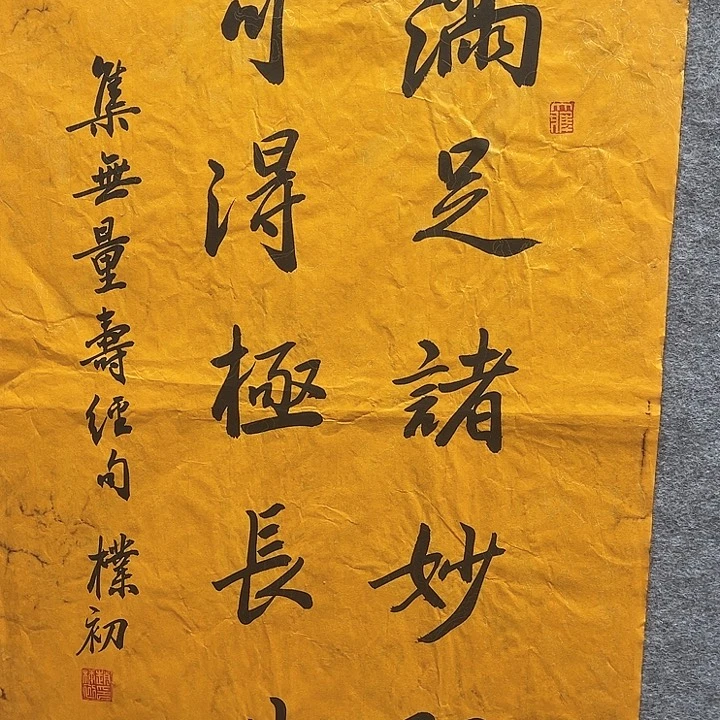 滿足諸妙
可得極長
集無量壽經句 樸初